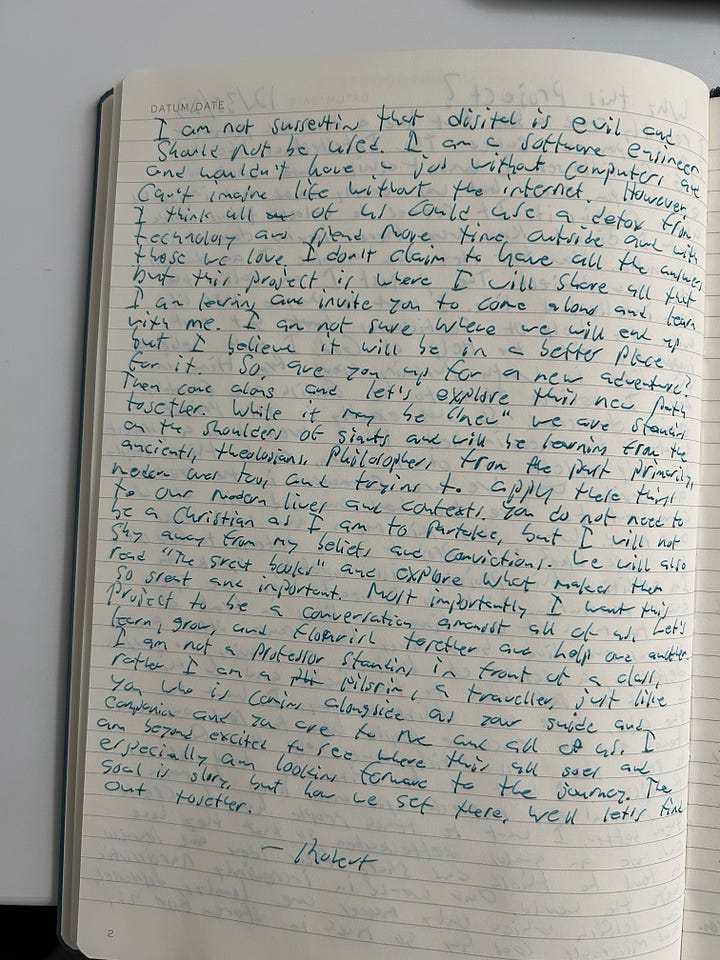 DATUM/DATE
I am not suggesting that digital is evil and
should not be used. I am a software engineer
and wouldn't have a job without computers and
can't imagine life without the internet. However,
I think all of us could use a detox from
technology and spend more time outside and with
those we love. I don't claim to have all the answers
but this project is where I will share all that
I am learning and invite you to come along and learn
with me. I am not sure where we will end up
but I believe it will be in a better place
for it. So, are you up for a new adventure?
Then come along and let's explore this new path
together. While it may be "new" we are standing
on the shoulders of giants and will be learning from the
ancients, theologians, philosophers, from the past primarily,
modern ones too, and trying to apply these things
to our modern lives and contexts. You do not need to
be a Christian as I am to partake, but I will not
shy away from my beliefs and convictions. We will also
read "The great books" and explore what makes them
so great and important. Most importantly I want this
project to be a conversation amongst all of us. Let's
learn, grow, and flourish together and help one another.
I am not a professor standing in front of a class,
rather I am a pilgrim, a traveller, just like
you who is coming alongside as your guide and
companion and you are to me and all of us. I
am beyond excited to see where this all goes and
especially am looking forward to the journey. The
goal is glory, but how we get there, well let's find
out together.
— Robert
2